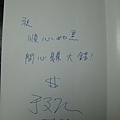 祝
順心如意
開心賺大錢!
$